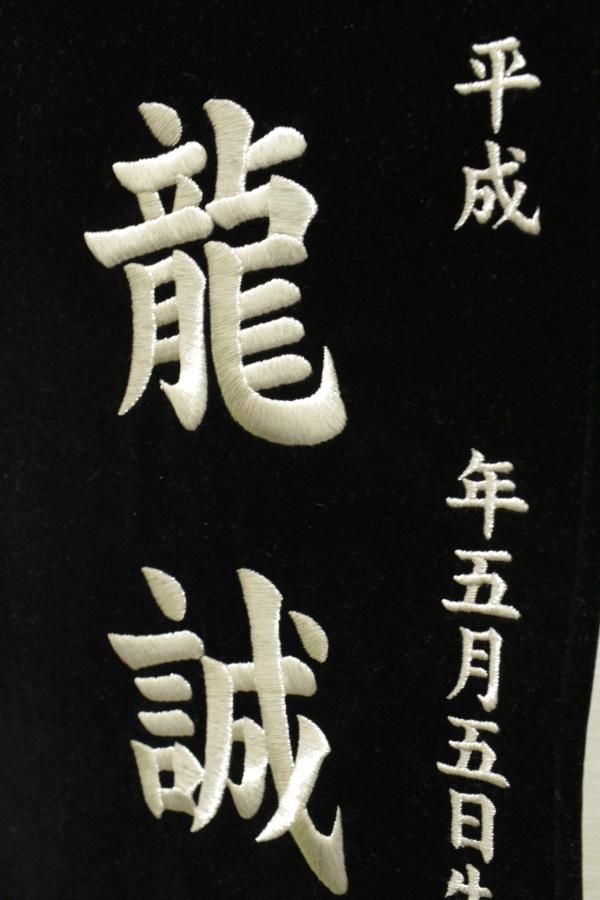 平成　　年五月五日生
龍誠